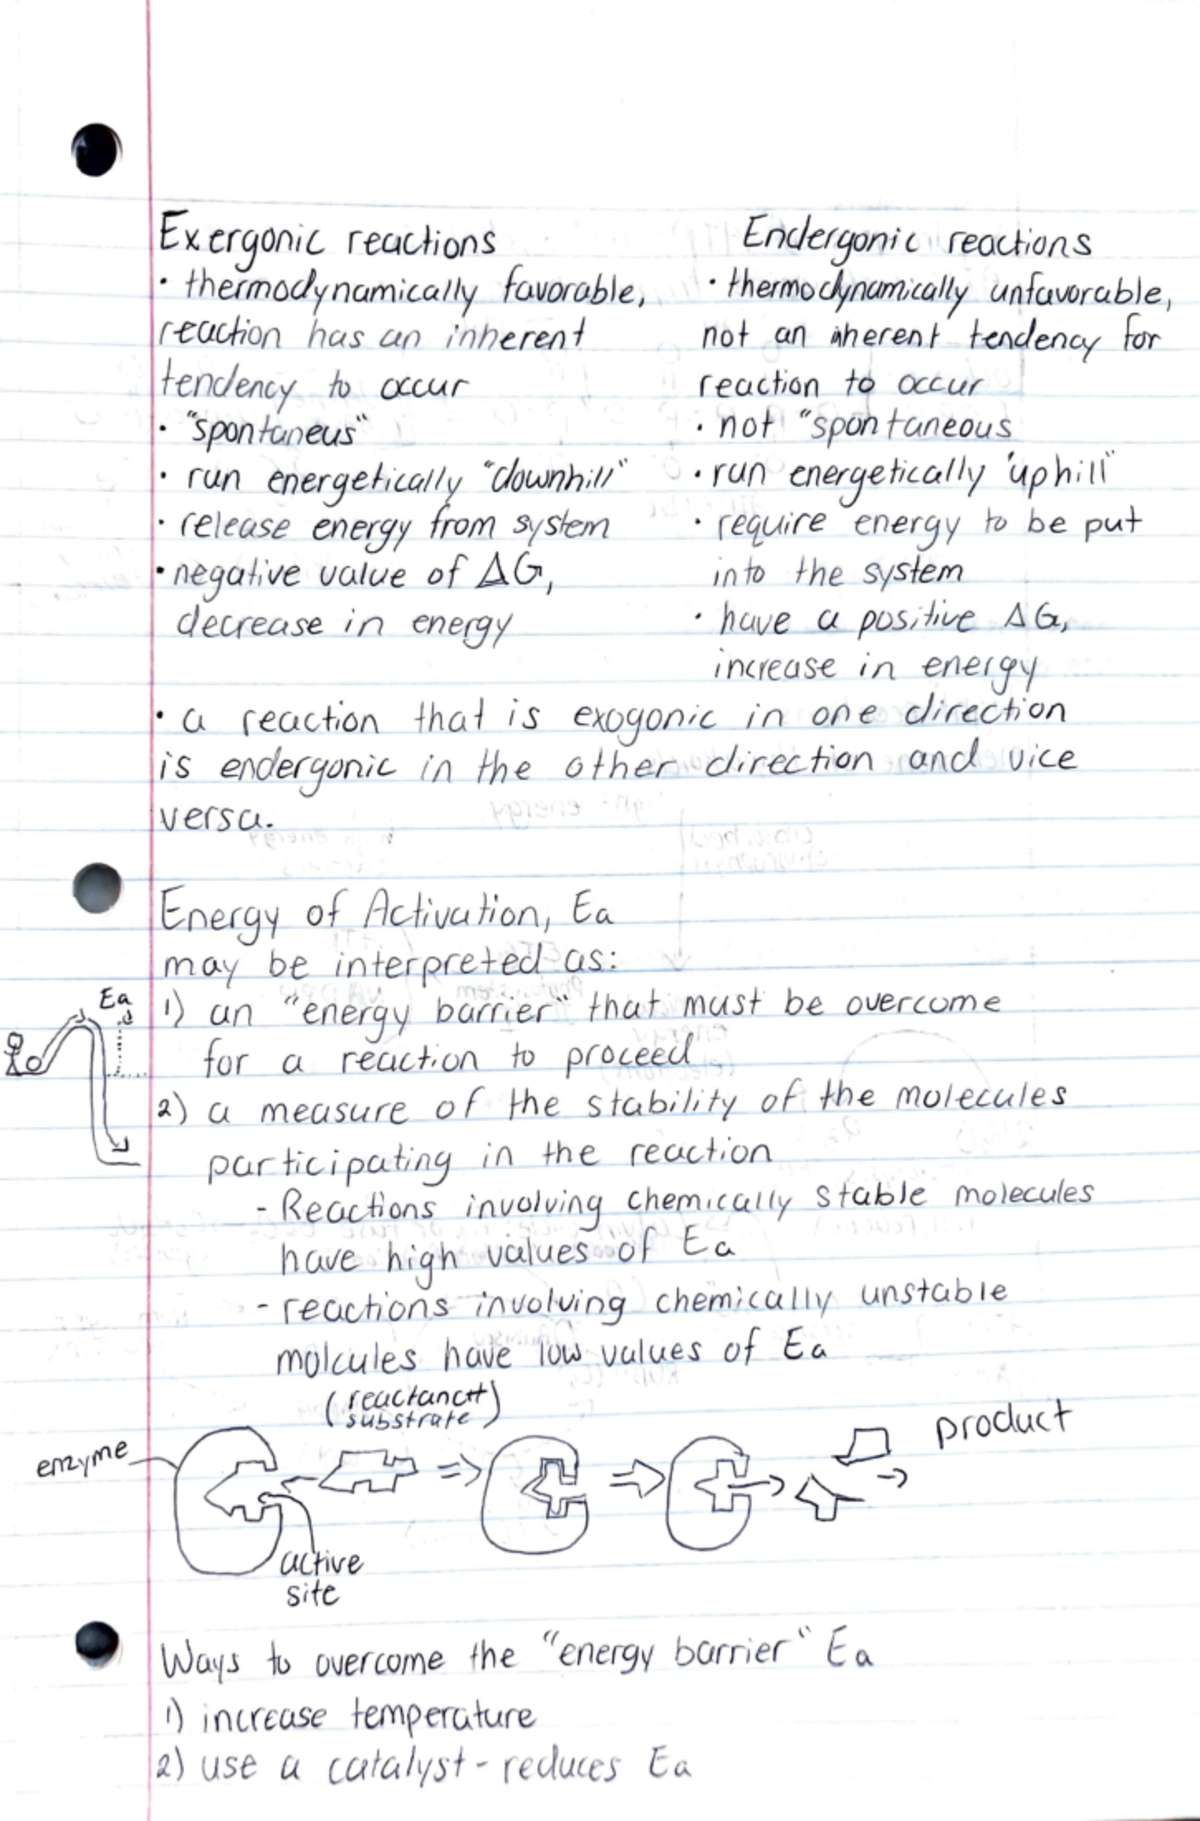 Exergonic reactions
• thermodynamically favorable,
reaction has an inherent
tendency to occur
• "spontaneus"
• run energetically "downhill"
• release energy from system
• negative value of ΔG,
decrease in energy
Endergonic reactions
• thermodynamically unfavorable,
not an inherent tendency for
reaction to occur
• not "spontaneous
• run energetically "uphill"
• require energy to be put
into the system
• have a positive ΔG,
increase in energy
• a reaction that is exogonic in one direction
is endergonic in the other direction and vice
versa.
Energy of Activation, Ea
may be interpreted as:
Ea
1) an "energy barrier" that must be overcome
for a reaction to proceed
2) a measure of the stability of the molecules
participating in the reaction
- Reactions involving chemically stable molecules
have high values of Ea
- reactions involving chemically unstable
molcules have low values of Ea
(reactanct
substrate)
product
enzyme
active
site
Ways to overcome the "energy barrier" Ea
1) increase temperature
2) use a catalyst - reduces Ea